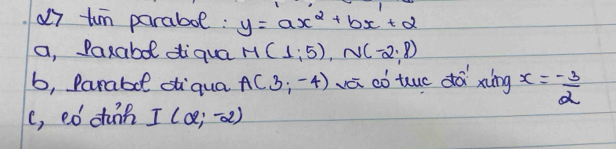 27 tìm parabol: y = ax² + bx + 2
a, Parabol đi qua M(1;5), N(-2;8)
b, Parabol đi qua A(3;-4) và có trục đối xứng x = -3/2
c, có đỉnh I(2;-2)